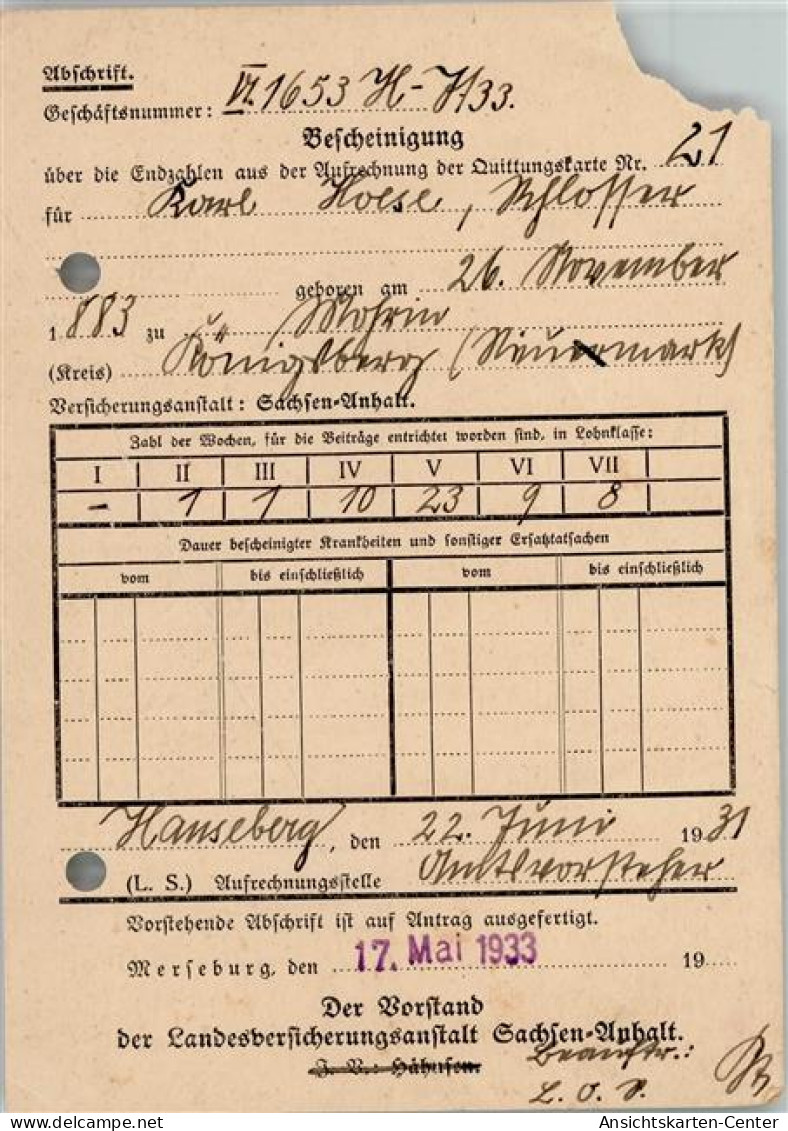 Abschrift.
Geschäftsnummer: VI. 1653 H-J/33.
Bescheinigung
über die Endzahlen aus der Aufrechnung der Quittungskarte Nr. 21
für Karl Holse, Schlosser
geboren am 26. November
1883 zu Mohrin
(Kreis) Königsberg (Neumark)
Versicherungsanstalt: Sachsen-Anhalt.
Zahl der Wochen, für die Beiträge entrichtet worden sind, in Lohnklasse:
I II III IV V VI VII
- 1 1 10 23 9 8
Dauer bescheinigter Krankheiten und sonstiger Ersatztatsachen
vom bis einschließlich vom bis einschließlich
Hanseberg, den 22. Juni 1931
(L. S.) Aufrechnungsstelle Amtsvorsteher
Vorstehende Abschrift ist auf Antrag ausgefertigt.
Merseburg, den 17. Mai 1933 19
Der Vorstand
der Landesversicherungsanstalt Sachsen-Anhalt.
J. V.: Hähnsen.
L. O. S.
Ansichtskarten-Center